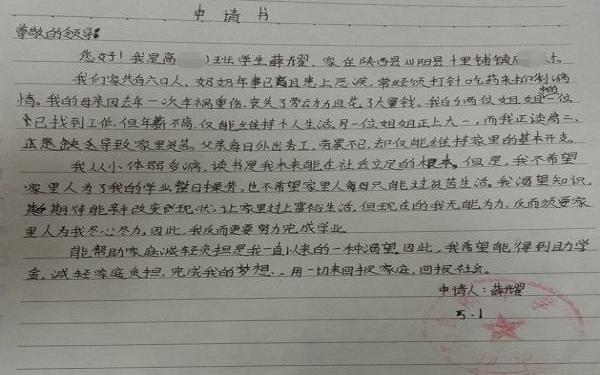 申请书
尊敬的领导:
您好!我是高 班学生薛耀,家在陕西省山阳县十里铺镇 村。
我们家共有六口人,奶奶年事已高且患上恶疾,常经须打针吃药来抑制病
情。我的母亲因去年一次车祸重伤,丧失了劳动力且花了大量钱。我的两位姐姐中的一位
已找到工作,但年薪不高,仅能维持个人生活。另一位姐姐正上大一,而我正读高二,
导致家里贫苦。父亲每日外出务工,劳累不已,却仅能维持家里的基本开支。
我从小体弱多病,读书是我未来能在社会立足的根本。但是,我不希望
家里人为了我的学业整日操劳,也不希望家里人每日只能过贫苦生活。我渴望知识,
期待能够改变现状,让家里过上富裕生活。但现在的我无能为力,反而须要家
里人为我尽心尽力。因此,我反而更要努力完成学业。
能帮助家庭减轻负担是我一直以来的一种渴望。因此,我希望能得到助学
金,减轻家庭负担,完成我的梦想。用一切来回报家庭,回报社会。
申请人:薛耀
5.1